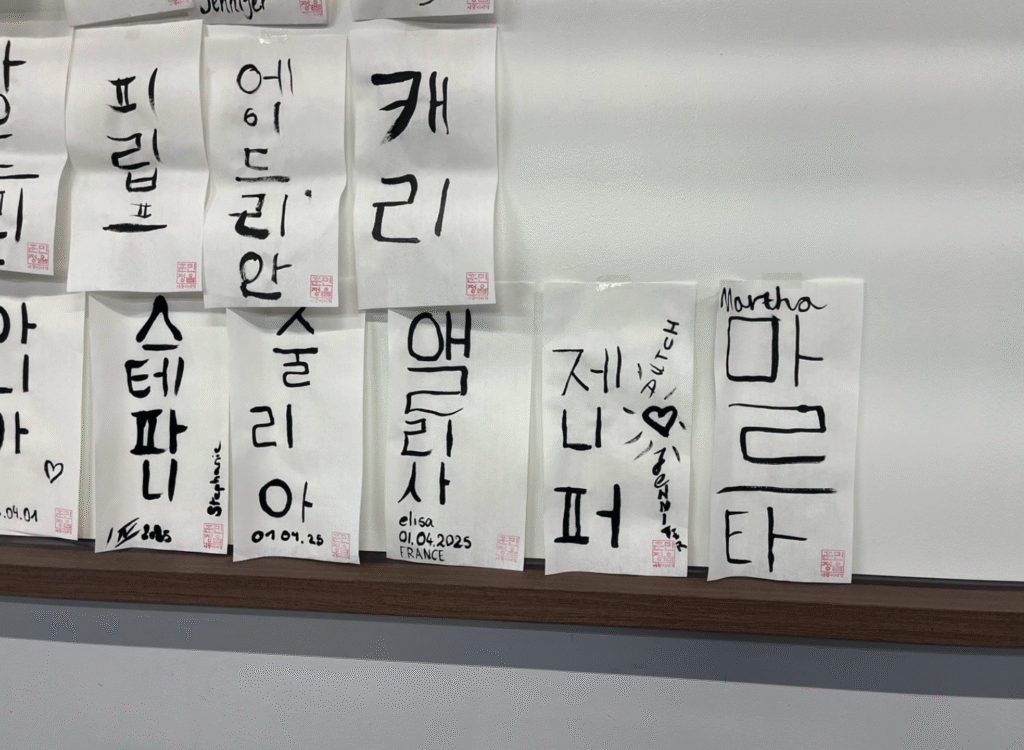 Jennifer
피
립
프
에
이
드
리
안
캐
리
.04.01
스
테
파
니
Stephanie
2025
술
리
아
01 04.25
앨
리
사
elisa
01.04.2025
FRANCE
제
니
퍼
DUTCH
Martha
마
르
타